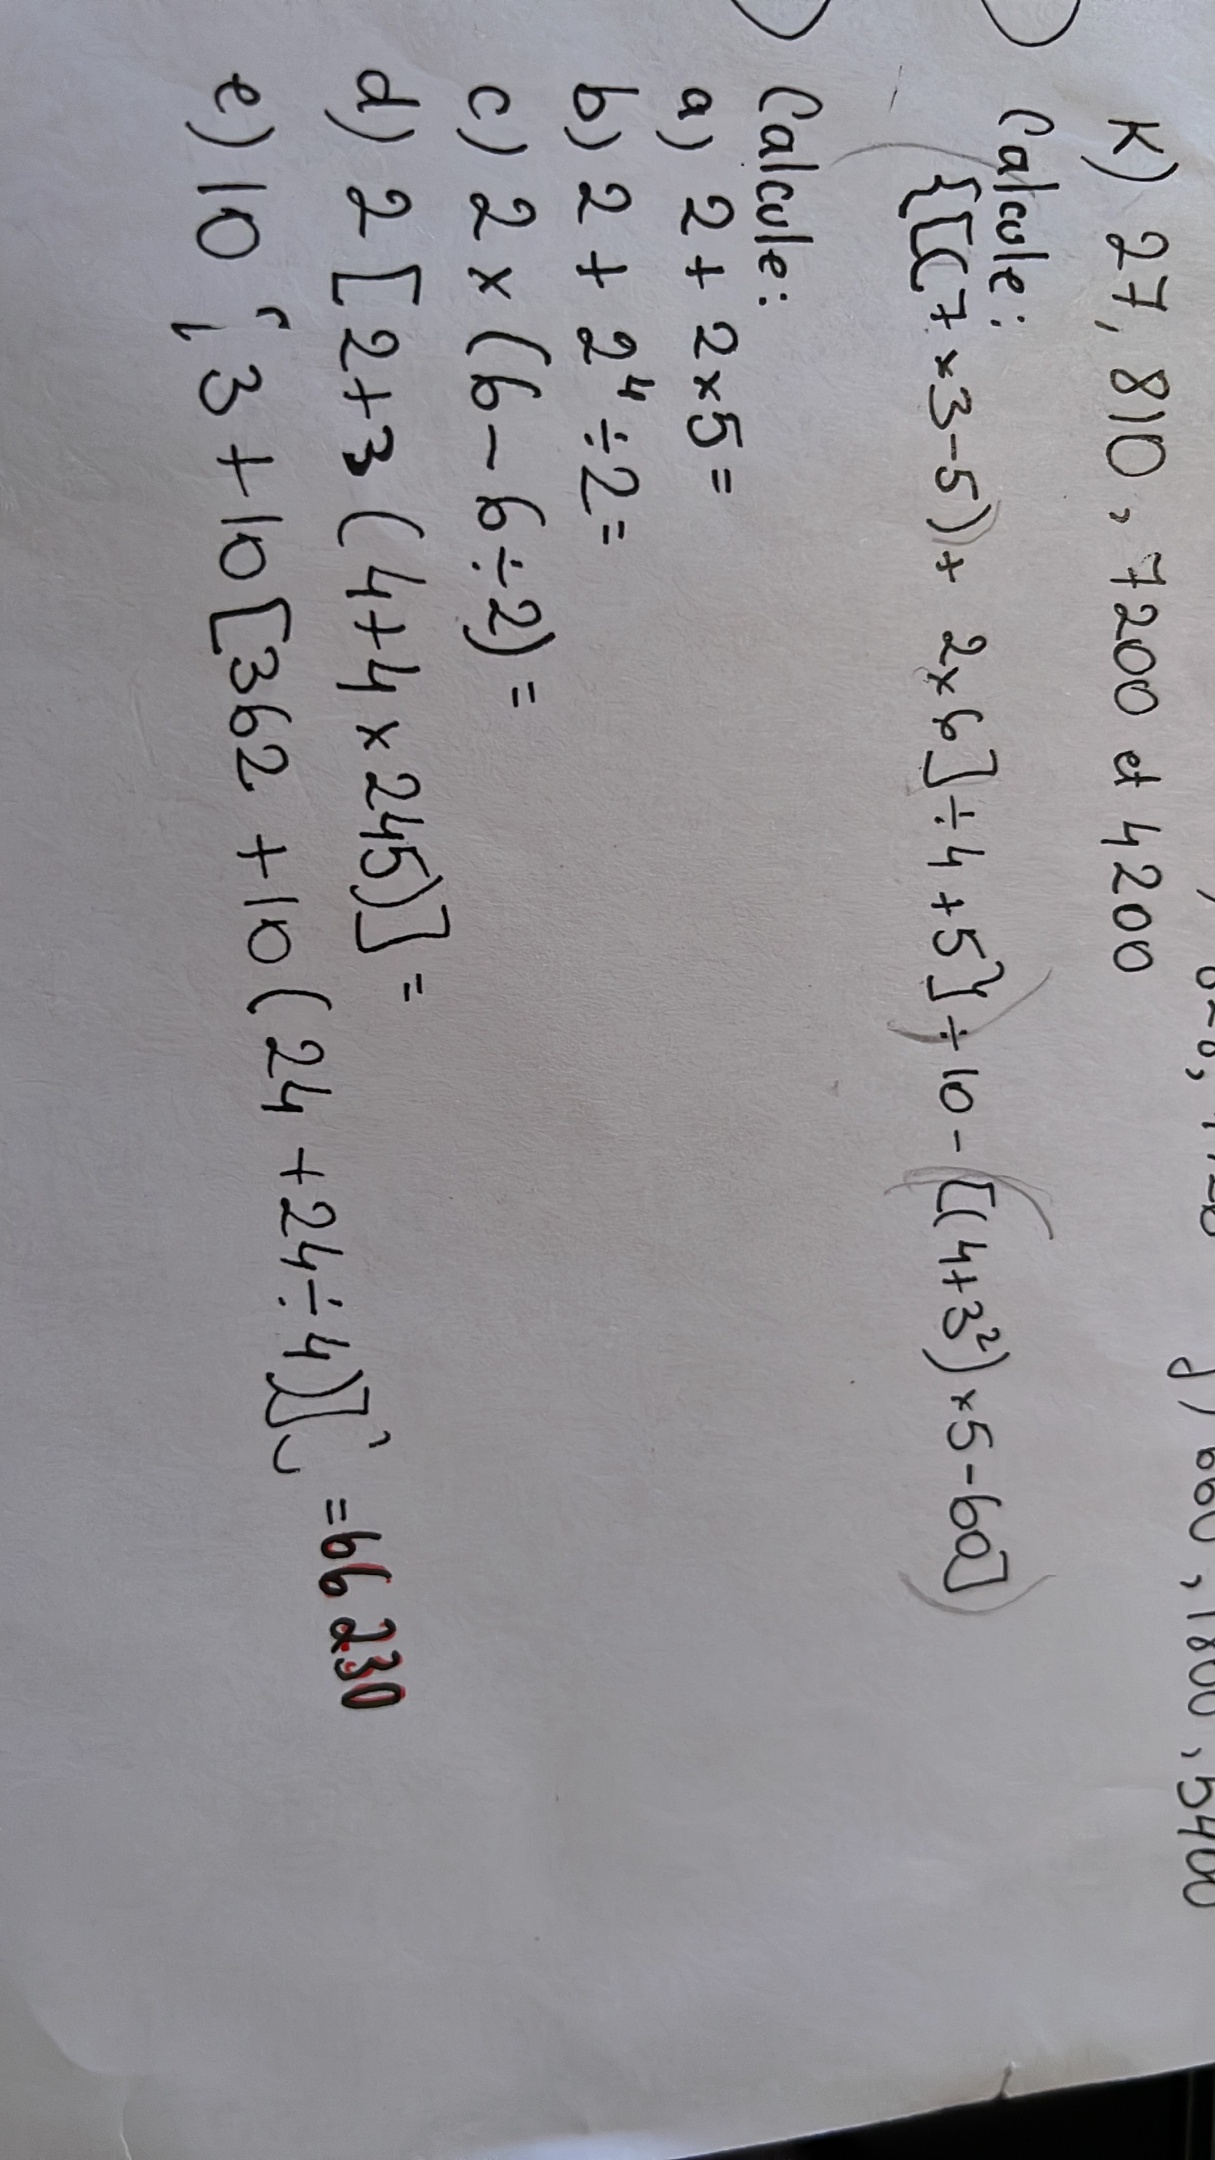 j) 660, 1800, 5400
K) 27, 810, 7200 et 4200
Calcule:
{[(7×3-5)+ 2×6]÷4+5}÷10-[(4+3²)×5-60]
Calcule:
a) 2+2×5=
b) 2+2⁴÷2=
c) 2×(6-6÷2)=
d) 2[2+3(4+4×245)]=
e) 10{3+10[362+10(24+24÷4)]}=66230